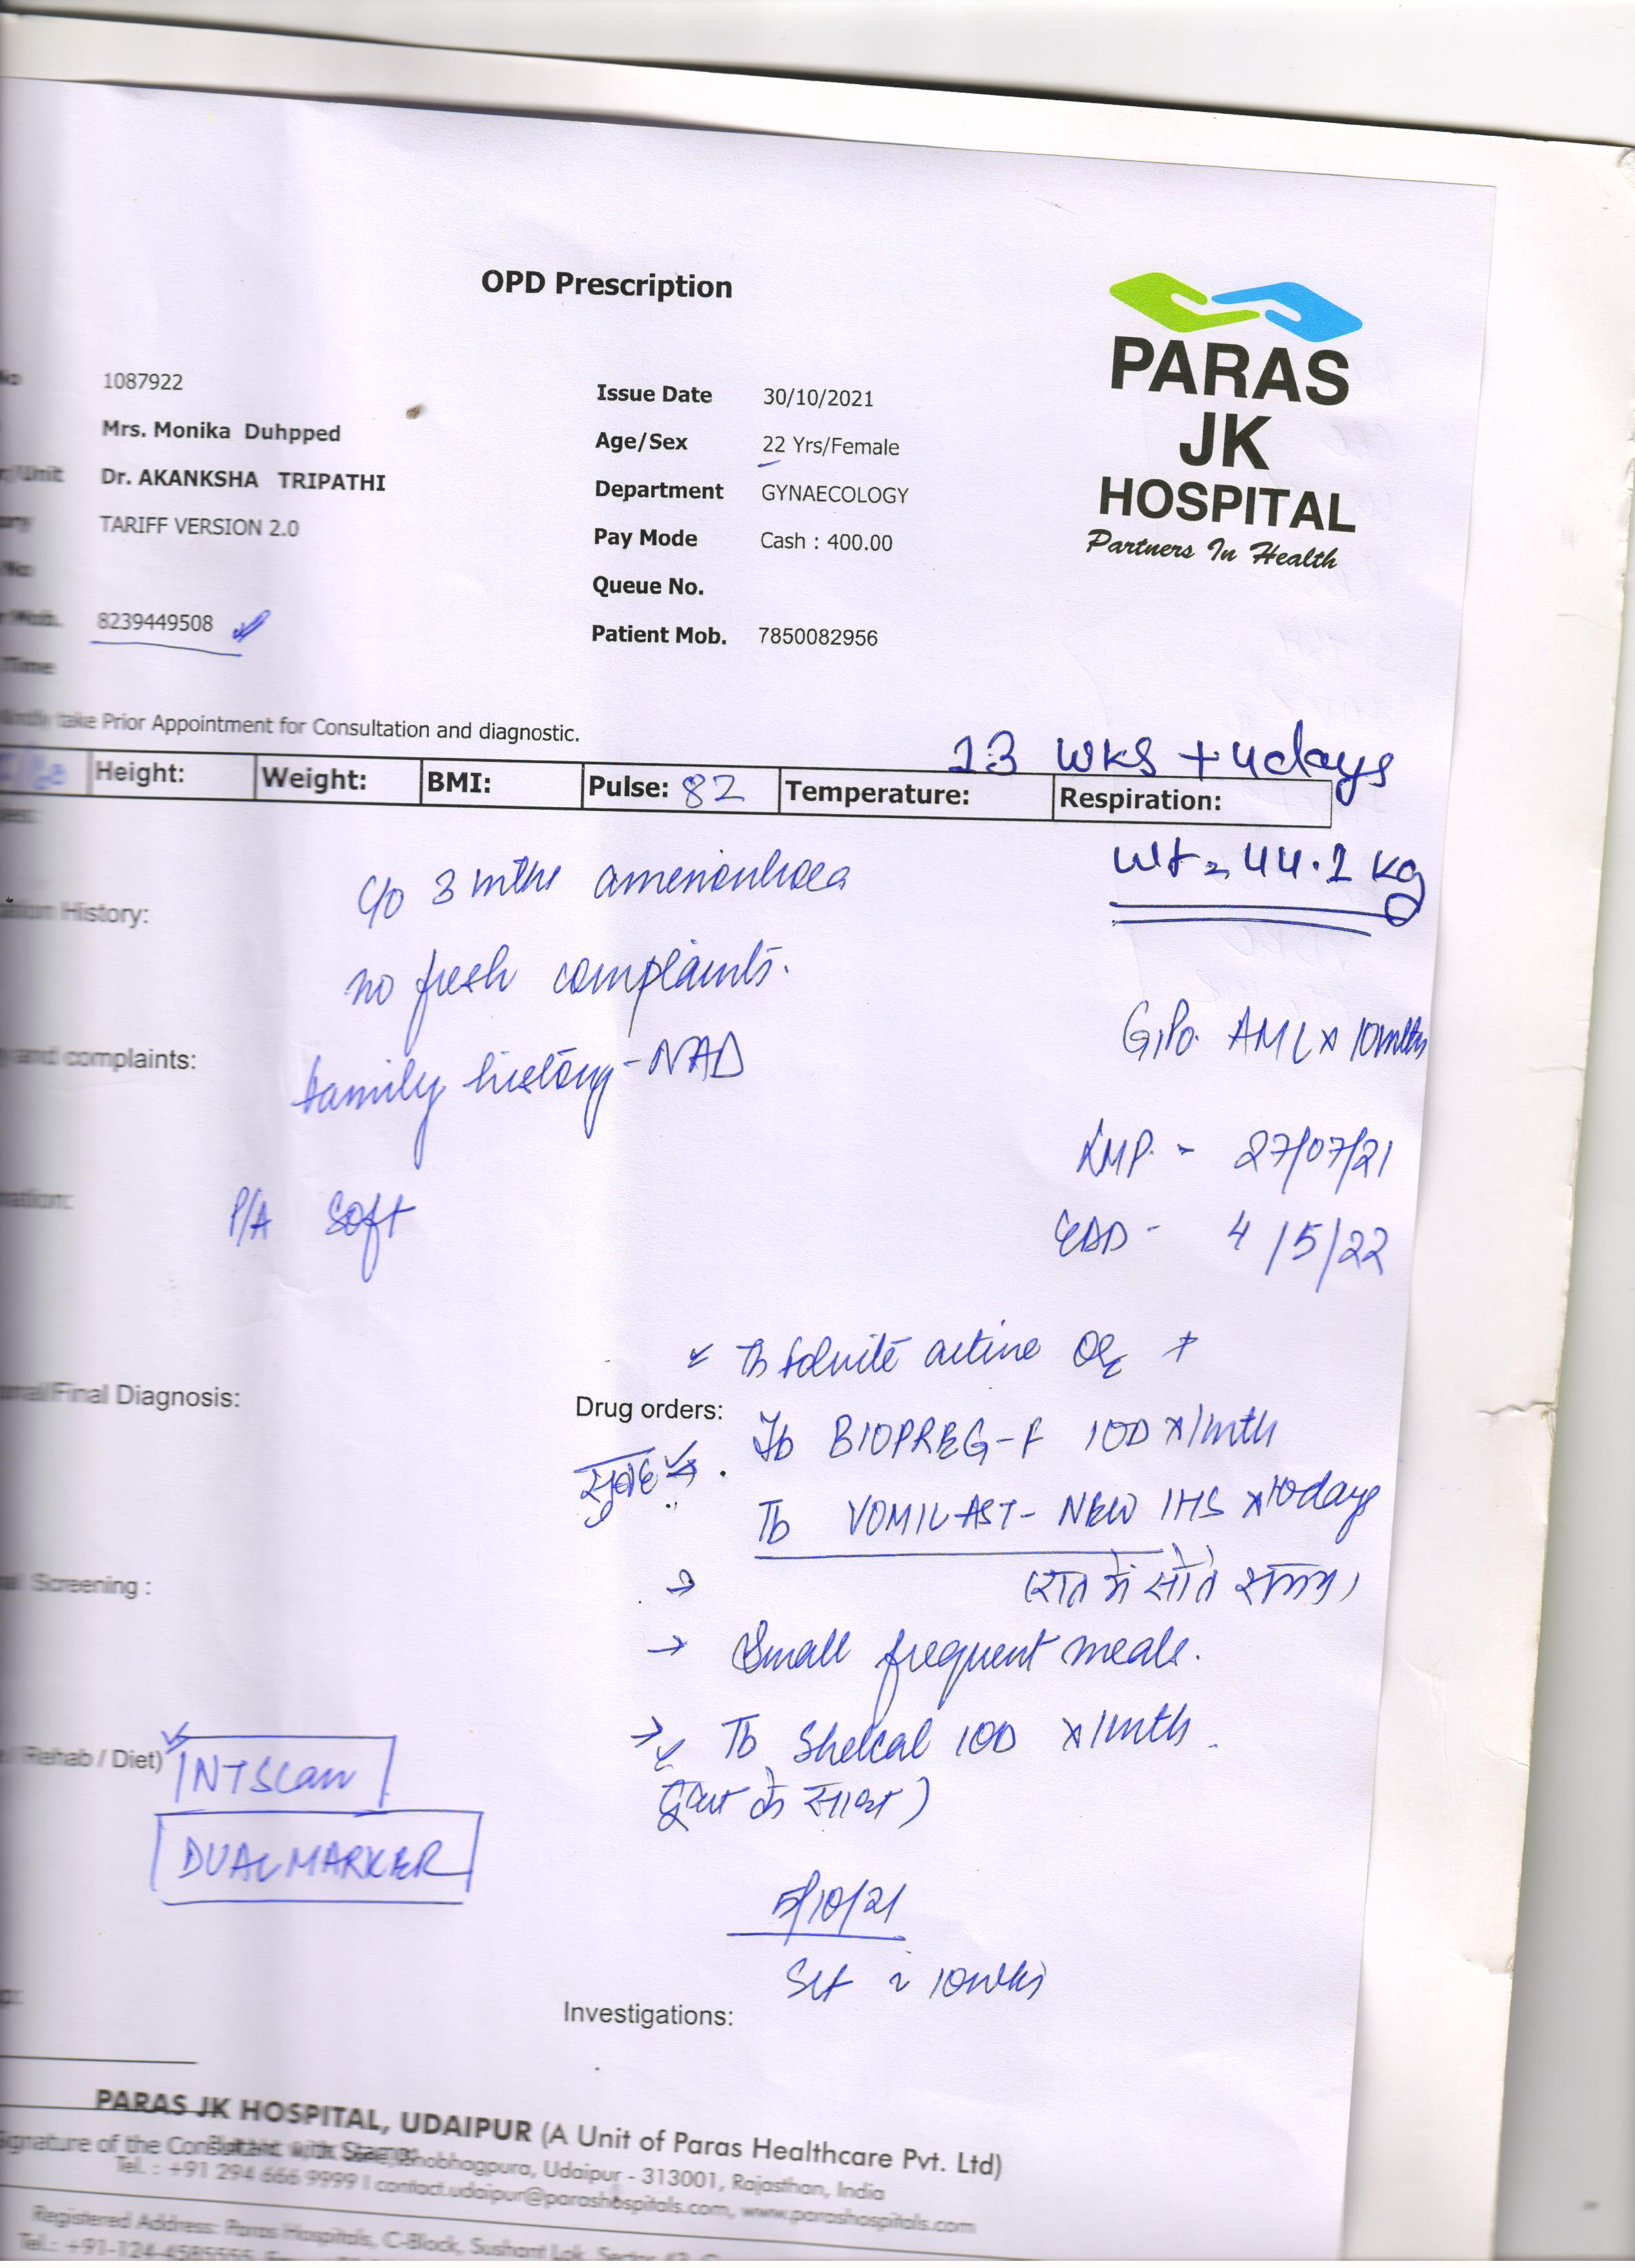 OPD Prescription
PARAS
JK
HOSPITAL
Partners In Health
No 1087922
Issue Date 30/10/2021
Mrs. Monika Duhpped
Age/Sex 22 Yrs/Female
/Unit Dr. AKANKSHA TRIPATHI
Department GYNAECOLOGY
TARIFF VERSION 2.0
Pay Mode Cash : 400.00
No
Queue No.
Mob. 8239449508
Patient Mob. 7850082956
Time
Kindly take Prior Appointment for Consultation and diagnostic.
13 wks + 4days
Height: Weight: BMI: Pulse: 82 Temperature: Respiration:
wt = 44.1 kg
c/o 3 mths amenorrhoea
History:
no fresh complaints.
G1P0. AML x 10mths
and complaints:
family history - NAD
LMP. - 27/07/21
P/A soft
EDD - 4/5/22
Tb folvite active OD
/Final Diagnosis:
Drug orders:
Tb BIOPREG-F 1OD x 1mth
सुबह
Tb VOMILAST-NEW 1HS x 10days
(रात में सोते समय)
Screening :
→ Small frequent meals.
→ Tb Shelcal 1OD x 1mth.
(दूध के साथ)
/ Rehab / Diet)
NT Scan
DUAL MARKER
5/10/21
10wks
Investigations:
PARAS JK HOSPITAL, UDAIPUR (A Unit of Paras Healthcare Pvt. Ltd)
Signature of the Consultant with Stamp
Shobhagpura, Udaipur - 313001, Rajasthan, India
Tel. : +91 294 666 9999 I contact.udaipur@parashospitals.com, www.parashospitals.com
Registered Address: Paras Hospitals, C-Block, Sushant Lok,
Tel.: +91-124-4585555,